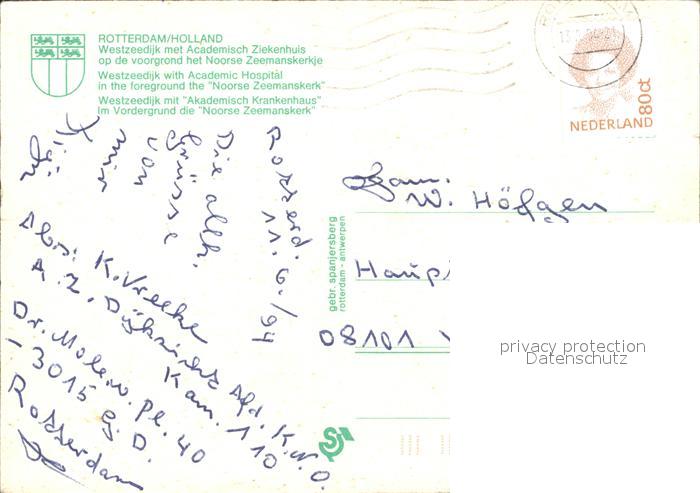 ROTTERDAM/HOLLAND
Westzeedijk met Academisch Ziekenhuis
op de voorgrond het Noorse Zeemanskerkje
Westzeedijk with Academic Hospital
in the foreground the "Noorse Zeemanskerk"
Westzeedijk mit "Akademisch Krankenhaus"
Im Vordergrund die "Noorse Zeemanskerk"
80ct
NEDERLAND
Rotterd.
11.6./94
Die allh.
Grüsse
von
mir
Abs: K. Vreeke
A.Z. Dijkzicht Afd. K.N.O.
Kam. 110
Dr. Molew. Pl. 40
- 3015 GD.
Rotterdam
gebr. spanjersberg
rotterdam - antwerpen
Fam.
W. Höfgen
Haup
08101
privacy protection
Datenschutz